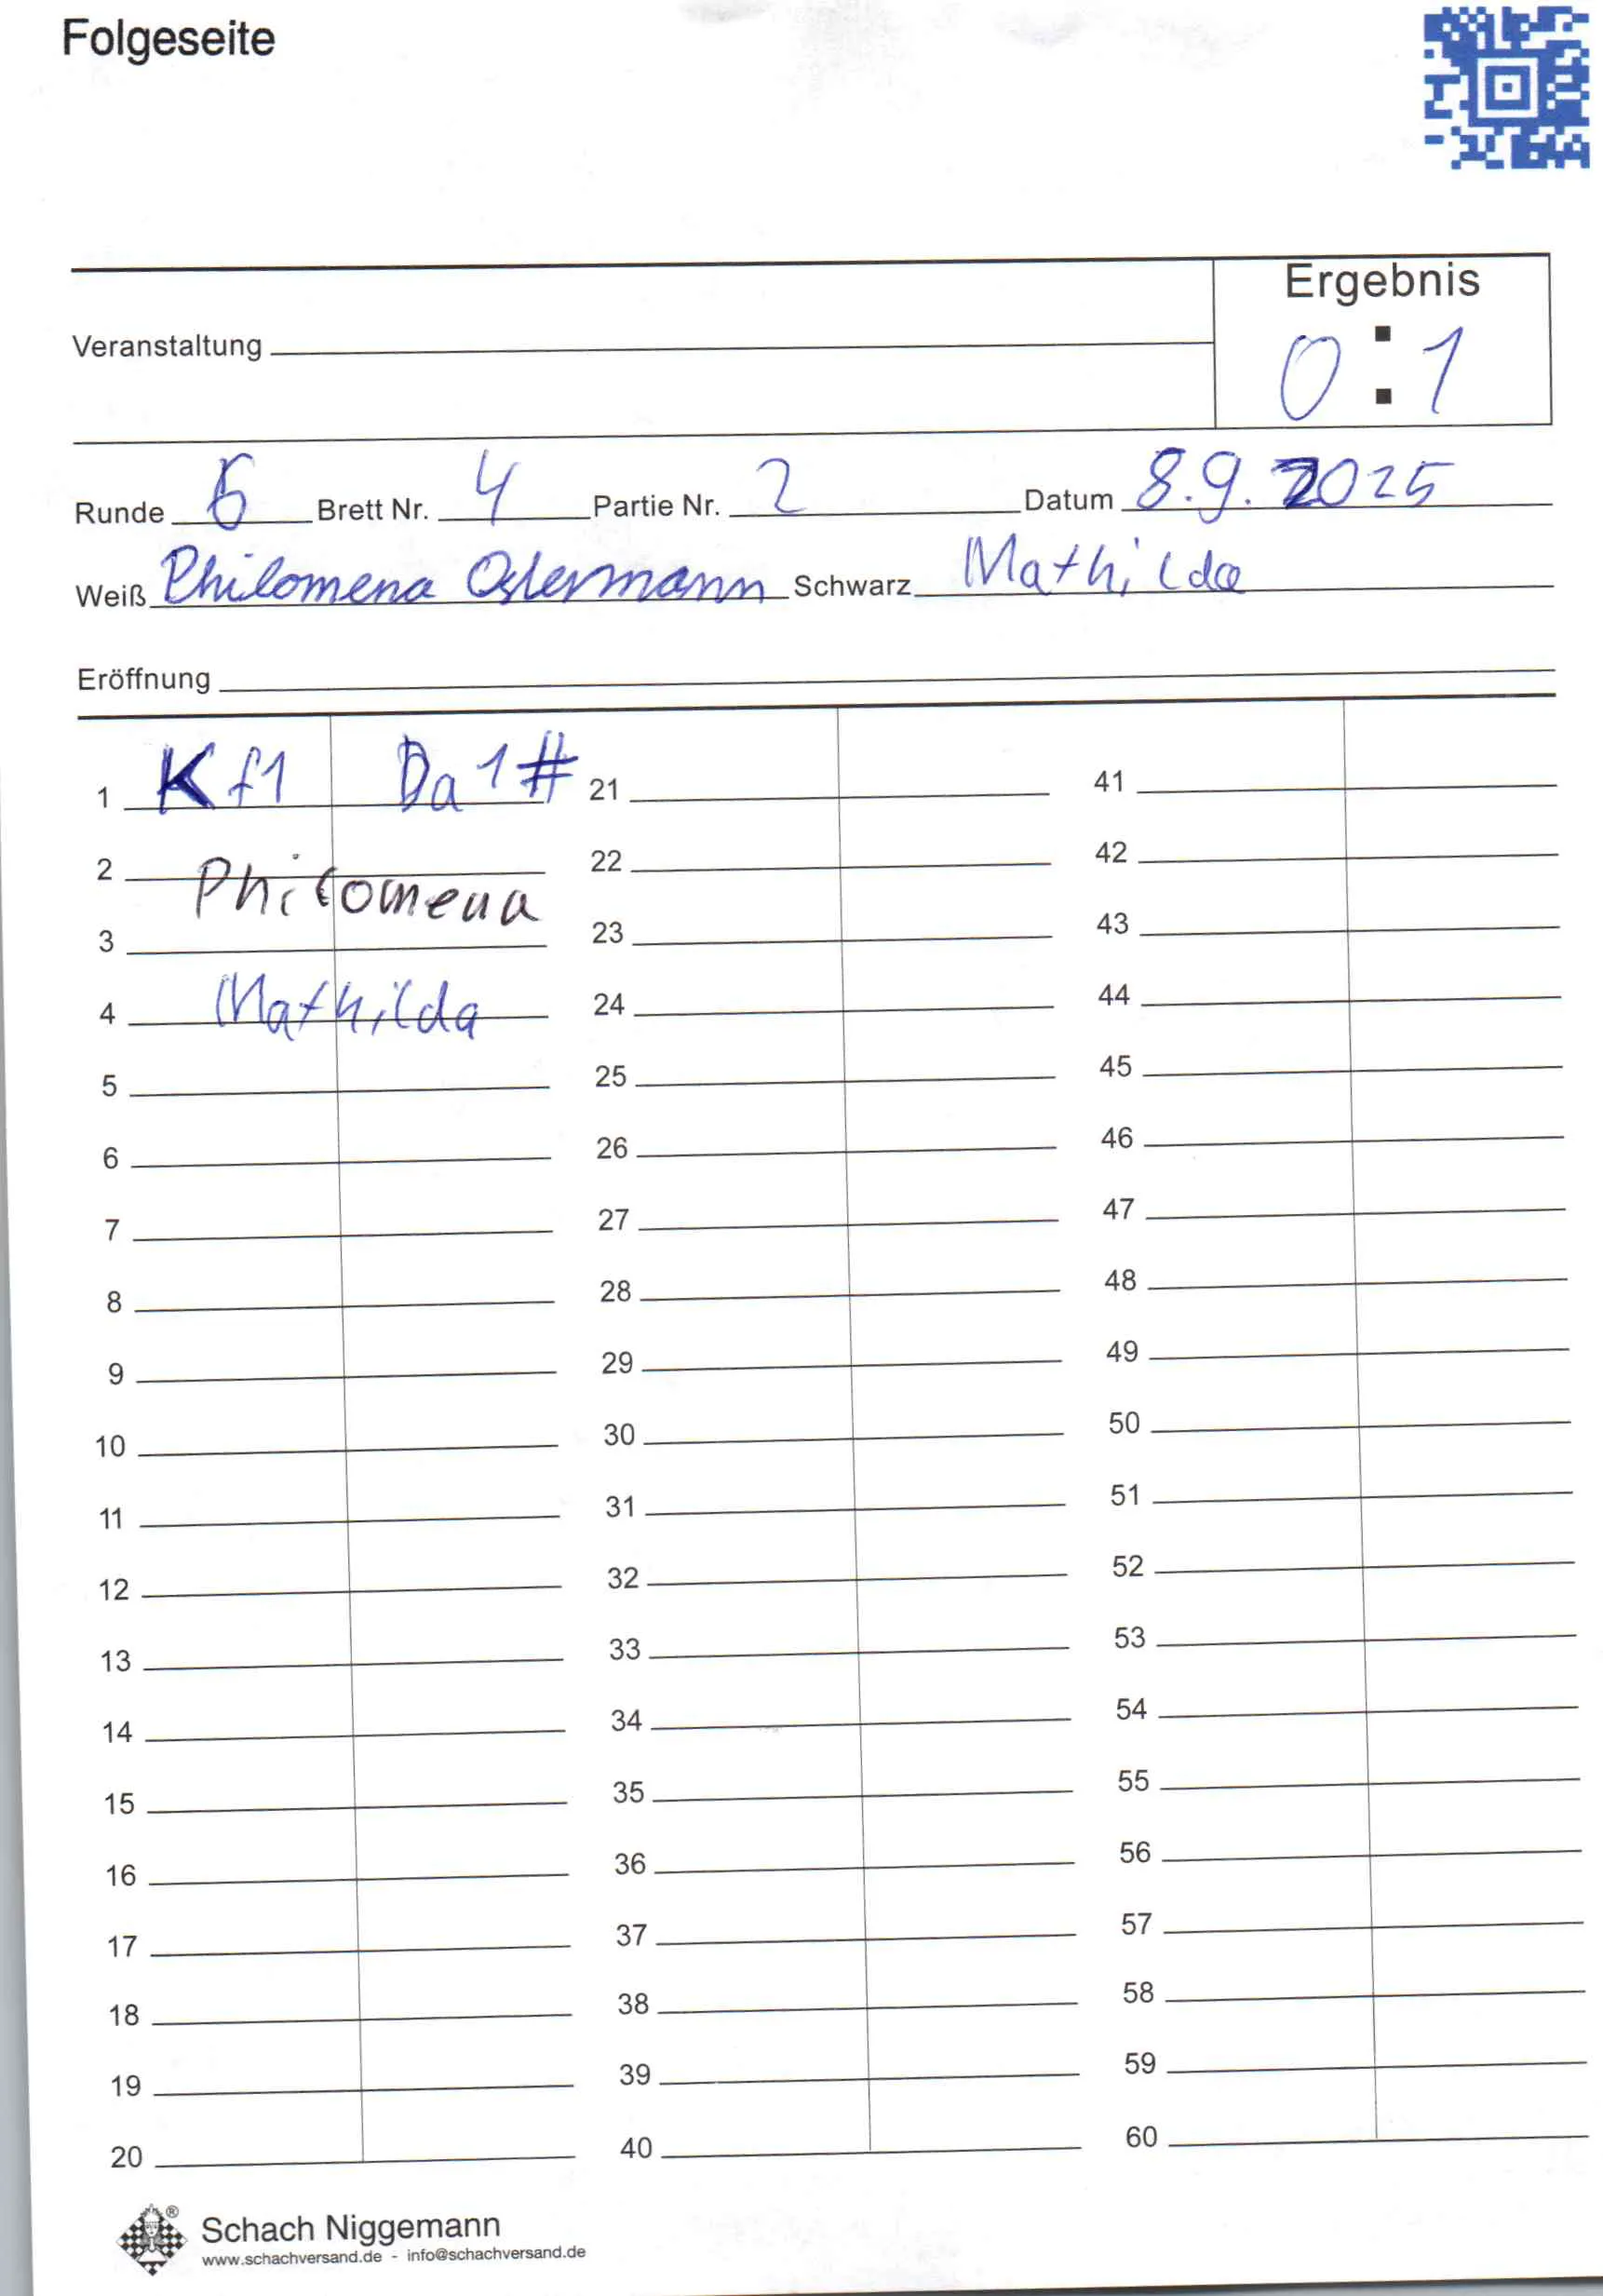 Folgeseite
Ergebnis
Veranstaltung
0 : 1
Runde Brett Nr. 4 Partie Nr. 2 Datum 8.9.2025
Weiß Philomena Ostermann Schwarz Mathilda
Eröffnung
1 Kf1 Da1# 21 41
2 Philomena 22 42
3 23 43
4 Mathilda 24 44
5 25 45
6 26 46
7 27 47
8 28 48
9 29 49
10 30 50
11 31 51
12 32 52
13 33 53
14 34 54
15 35 55
16 36 56
17 37 57
18 38 58
19 39 59
20 40 60
Schach Niggemann ®
www.schachversand.de - info@schachversand.de